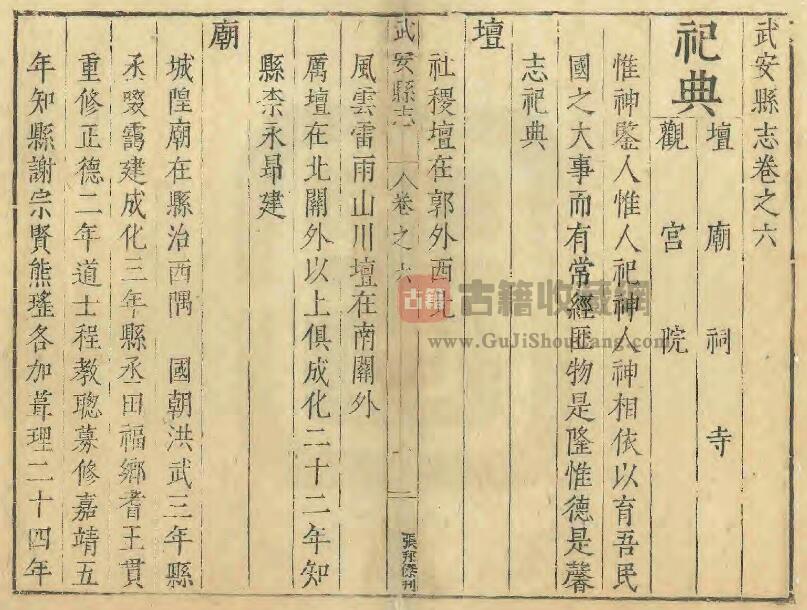 武安縣志卷之六
祀典
壇 廟 祠 寺
觀 宮 院
惟神鑒人惟人祀神人神相依以育吾民
國之大事而有常經匪物是隆惟德是馨
志祀典
壇
社稷壇在郭外西北
武安縣志 卷之六 張邦傑刊
風雲雷雨山川壇在南關外
厲壇在北關外以上俱成化二十二年知
縣柰永昂建
廟
城隍廟在縣治西隅 國朝洪武三年縣
丞叚靄建成化三年縣丞田福鄉耆王貫
重修正德二年道士程教聰募修嘉靖五
年知縣謝宗賢熊瑤各加葺理二十四年
古籍
古籍收藏網
www.GuJiShouCang.com